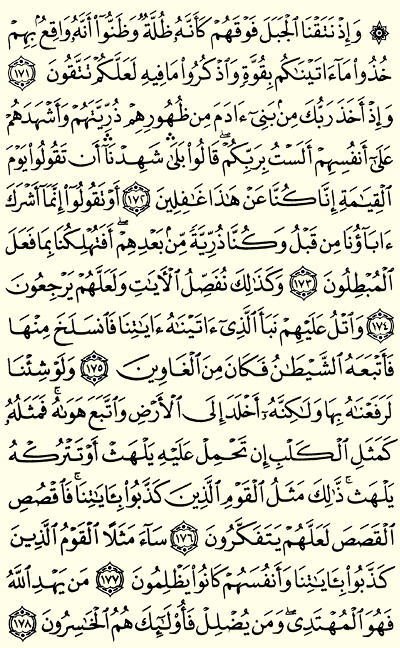 ۞ وَإِذْ نَتَقْنَا ٱلْجَبَلَ فَوْقَهُمْ كَأَنَّهُۥ ظُلَّةٌ وَظَنُّوٓا۟ أَنَّهُۥ وَاقِعٌۢ بِهِمْ
خُذُوا۟ مَآ ءَاتَيْنَـٰكُم بِقُوَّةٍ وَٱذْكُرُوا۟ مَا فِيهِ لَعَلَّكُمْ تَتَّقُونَ ١٧١
وَإِذْ أَخَذَ رَبُّكَ مِنۢ بَنِىٓ ءَادَمَ مِن ظُهُورِهِمْ ذُرِّيَّتَهُمْ وَأَشْهَدَهُمْ
عَلَىٰٓ أَنفُسِهِمْ أَلَسْتُ بِرَبِّكُمْ ۖ قَالُوا۟ بَلَىٰ ۛ شَهِدْنَآ ۛ أَن تَقُولُوا۟ يَوْمَ
ٱلْقِيَـٰمَةِ إِنَّا كُنَّا عَنْ هَـٰذَا غَـٰفِلِينَ ١٧٢ أَوْ تَقُولُوٓا۟ إِنَّمَآ أَشْرَكَ
ءَابَآؤُنَا مِن قَبْلُ وَكُنَّا ذُرِّيَّةً مِّنۢ بَعْدِهِمْ ۖ أَفَتُهْلِكُنَا بِمَا فَعَلَ
ٱلْمُبْطِلُونَ ١٧٣ وَكَذَٰلِكَ نُفَصِّلُ ٱلْـَٔايَـٰتِ وَلَعَلَّهُمْ يَرْجِعُونَ
١٧٤ وَٱتْلُ عَلَيْهِمْ نَبَأَ ٱلَّذِىٓ ءَاتَيْنَـٰهُ ءَايَـٰتِنَا فَٱنسَلَخَ مِنْهَا
فَأَتْبَعَهُ ٱلشَّيْطَـٰنُ فَكَانَ مِنَ ٱلْغَاوِينَ ١٧٥ وَلَوْ شِئْنَا
لَرَفَعْنَـٰهُ بِهَا وَلَـٰكِنَّهُۥٓ أَخْلَدَ إِلَى ٱلْأَرْضِ وَٱتَّبَعَ هَوَىٰهُ ۚ فَمَثَلُهُۥ
كَمَثَلِ ٱلْكَلْبِ إِن تَحْمِلْ عَلَيْهِ يَلْهَثْ أَوْ تَتْرُكْهُ
يَلْهَث ۚ ذَّٰلِكَ مَثَلُ ٱلْقَوْمِ ٱلَّذِينَ كَذَّبُوا۟ بِـَٔايَـٰتِنَا ۚ فَٱقْصُصِ
ٱلْقَصَصَ لَعَلَّهُمْ يَتَفَكَّرُونَ ١٧٦ سَآءَ مَثَلًا ٱلْقَوْمُ ٱلَّذِينَ
كَذَّبُوا۟ بِـَٔايَـٰتِنَا وَأَنفُسَهُمْ كَانُوا۟ يَظْلِمُونَ ١٧٧ مَن يَهْدِ ٱللَّهُ
فَهُوَ ٱلْمُهْتَدِى ۖ وَمَن يُضْلِلْ فَأُو۟لَـٰٓئِكَ هُمُ ٱلْخَـٰسِرُونَ ١٧٨